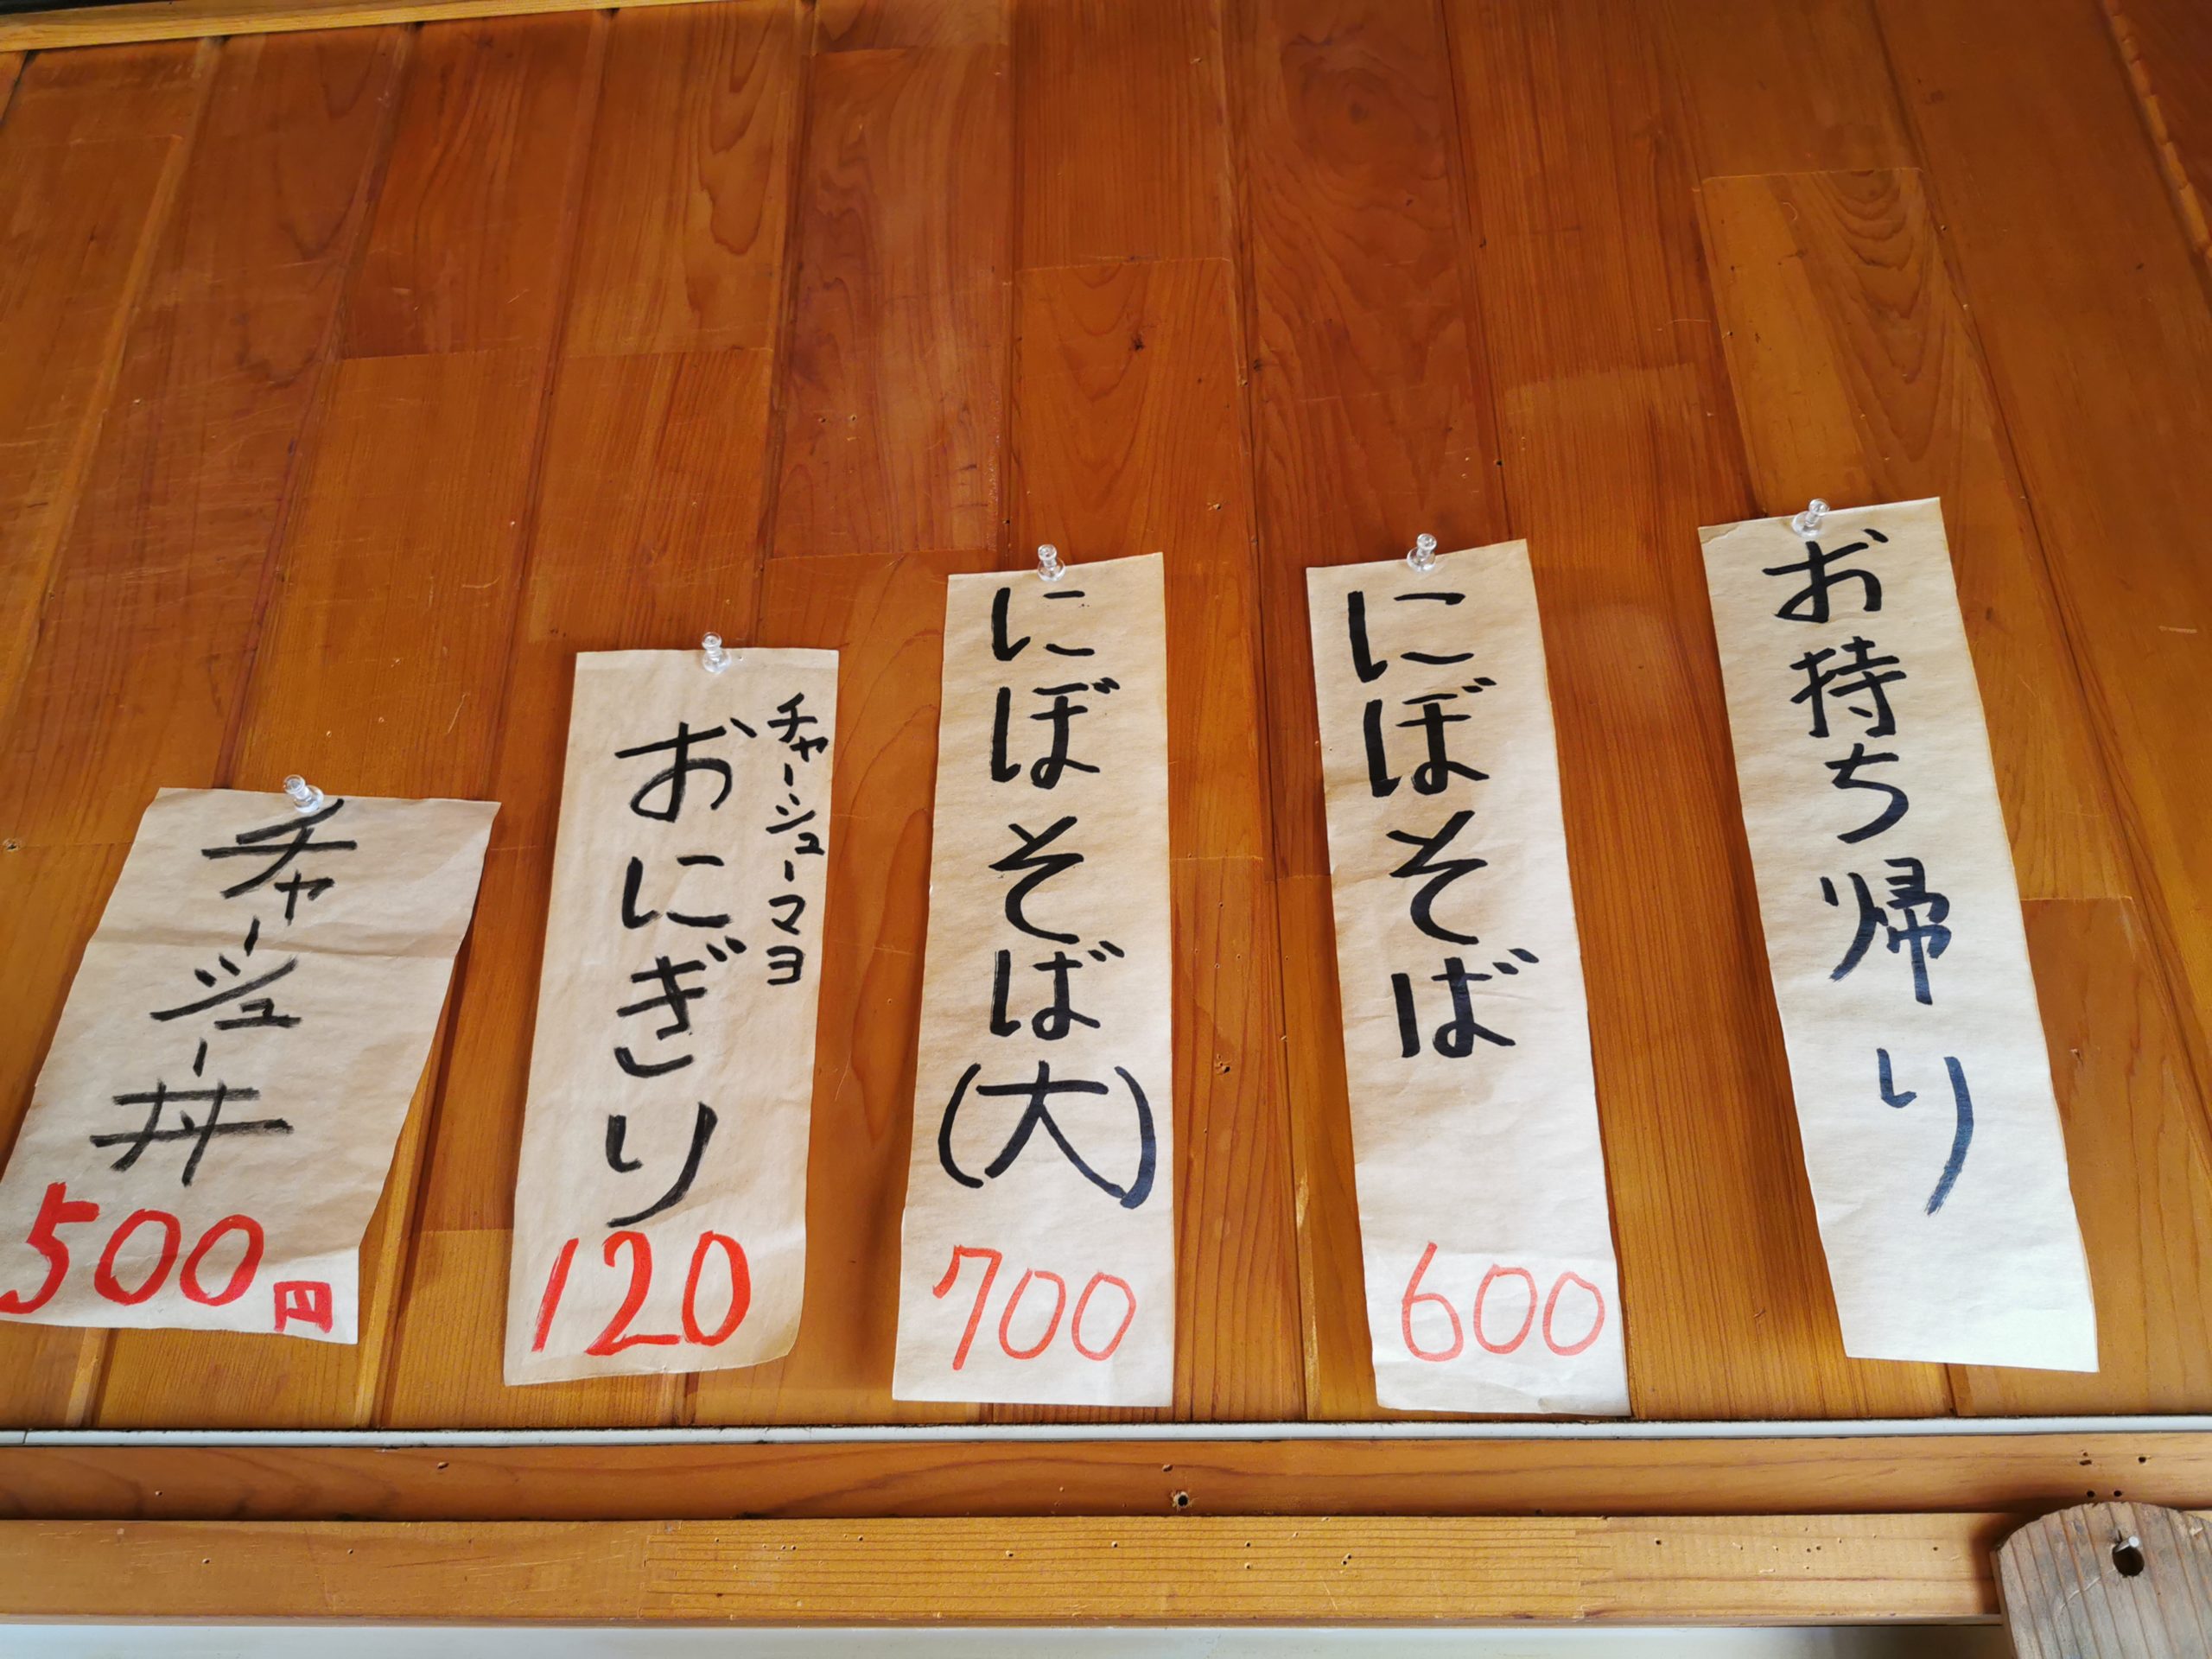 お持ち帰り
にぼそば
600
にぼそば(大)
700
チャーシューマヨ
おにぎり
120
チャーシュー丼
500円